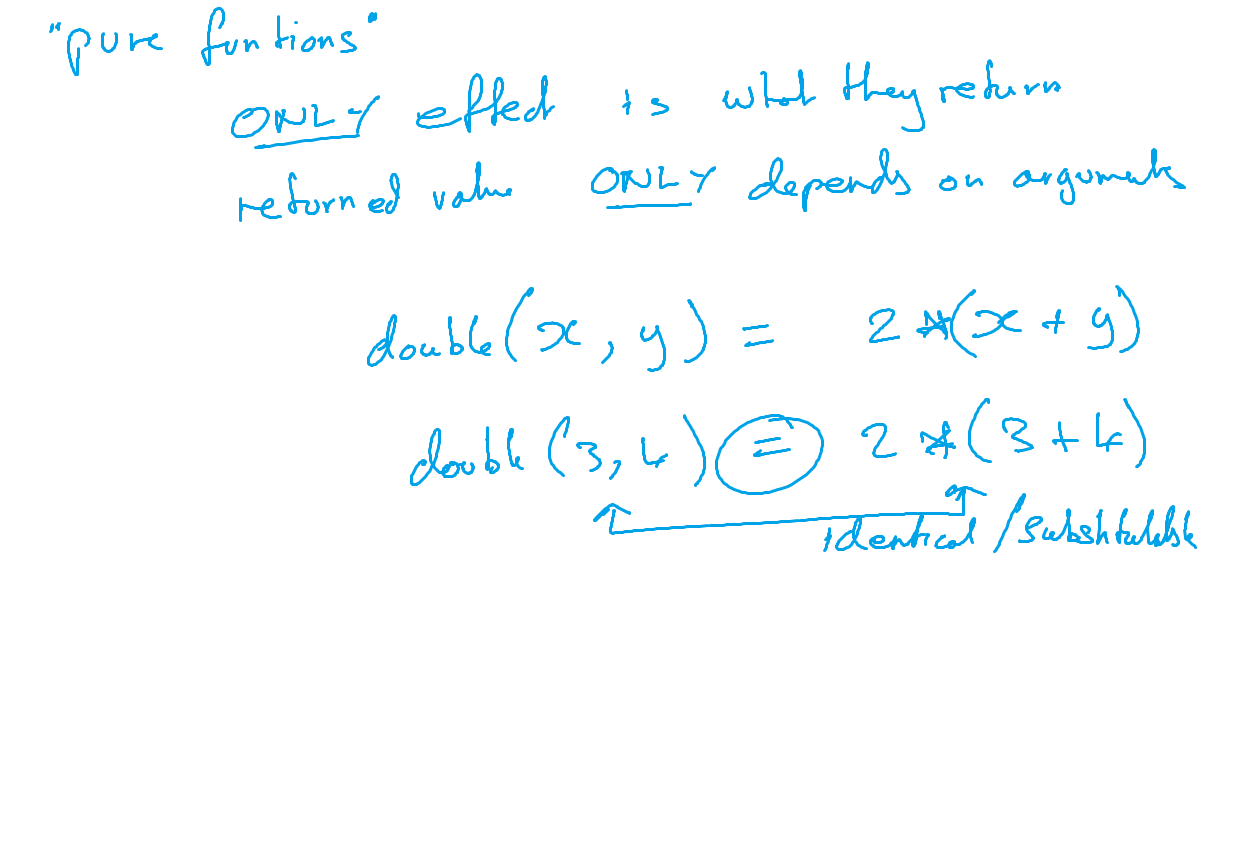 "pure funtions"
ONLY effect is what they return
returned value ONLY depends on arguments
double(x, y) = 2 *(x + y)
double (3, 4) = 2 *(3 + 4)
identical / substitutable